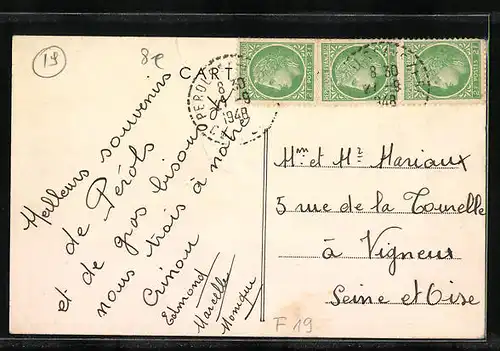 19
8e
CART
PEROL
8 30
8
1948
8 30
27 -8
1948
Meilleurs souvenirs
de Pérols
et de gros bisous de
nous trois à notre
Edmond
Marcelle
Monique
Mme et Mr Mariaux
5 rue de la Tourelle
à Vigneux
Seine et Oise
F 19